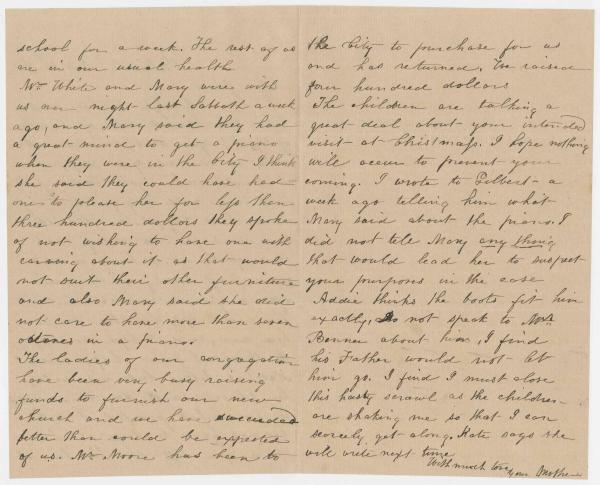 school for a week. The rest of us
are in our usual health
Mr White and Mary were with
us one night last Sabbath a week
ago, and Mary said they had
a great mind to get a piano
when they were in the City I think
she said they could have had
one to please her for less than
three hundred dollars they spoke
of not wishing to have one with
carving about it as that would
not suit their other furniture
and also Mary said she did
not care to have more than seven
octaves in a piano.
The ladies of our congregation
have been very busy raising
funds to furnish our new
church and we have succeeded
better than could be expected
of us. Mr Moore has been to
the City to purchase for us
and has returned. We raised
four hundred dollars
The children are talking a
great deal about your intended
visit at Christmass. I hope nothing
will occur to prevent your
coming. I wrote to Gilbert a
week ago telling him what
Mary said about the piano. I
did not tell Mary any thing
that would lead her to suspect
your purposes in the case
Addie thinks the boots fit him
exactly, Do not speak to
about him, I find
his Father would not let
him go. I find I must close
this hasty scrawl as the children
are shaking me so that I can
scorcely get along. Kate says she
will write next time
With much love
your Mother